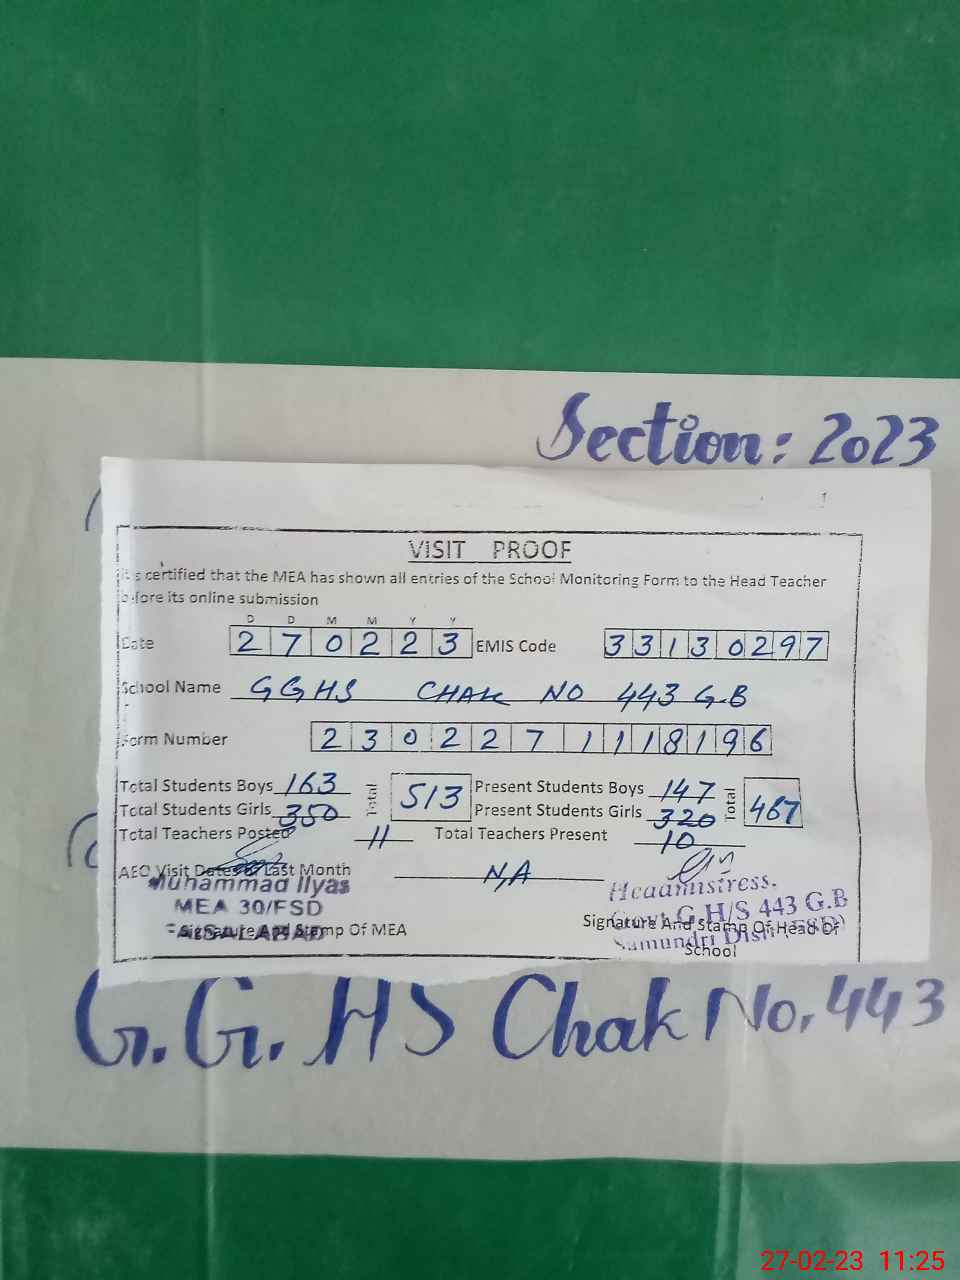 Section: 2023
VISIT PROOF
certified that the MEA has shown all entries of the School Monitoring Form to the Head Teacher
before its online submission
D D M M Y Y
Date 270223 EMIS Code 33130297
School Name GGHS CHAK NO 443 G.B
Form Number 230227118196
Total Students Boys 163 Total 513 Present Students Boys 147 Total 467
Total Students Girls 350 Present Students Girls 320
Total Teachers Posted 11 Total Teachers Present 10
AEO Visit Dates of Last Month N,A
Muhammad Ilyas
MEA 30/FSD
FAISALABAD
Signature And Stamp Of MEA
Headmistress.
Govt. G.H/S 443 G.B
Samundri Distt. FSD)
Signature And Stamp Of Head Of
School
G.G.HS Chak No. 443
27-02-23 11:25